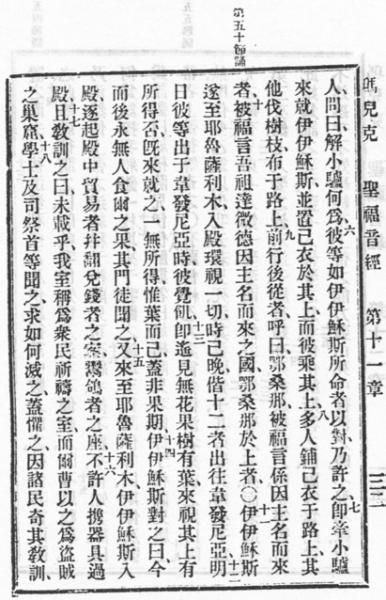 瑪兒克 聖福音經 第十一章
人問曰解小驢何爲六彼等如伊伊穌斯所命者以對乃許之七卽牽小驢
來就伊伊穌斯並置己衣於其上而彼乘其上八多人鋪己衣于路上其
他伐樹枝布于路上九前行後從者呼曰鄂桑那被福言係因主名而來
者十被福言吾祖達微德因主名而來之國鄂桑那於上者○十一伊伊穌斯
遂至耶魯薩利木入殿環視一切時已晚偕十二者出往韋發尼亞十二明
日彼等出于韋發尼亞時彼覺飢十三卽遙見無花果樹有葉來視其上有
所得否旣來就之一無所得惟葉而已蓋非果期十四伊伊穌斯對之曰今
而後永無人食爾之果其門徒聞之十五又來至耶魯薩利木伊伊穌斯入
殿逐起殿中貿易者幷翻兌錢者之案鬻鴿者之座十六不許人携器具過
殿十七且敎訓之曰未載乎我室稱爲衆民祈禱之室而爾曹以之爲盜賊
之巢窟十八學士及司祭首等聞之求如何滅之蓋懼之因諸民奇其敎訓
第五十